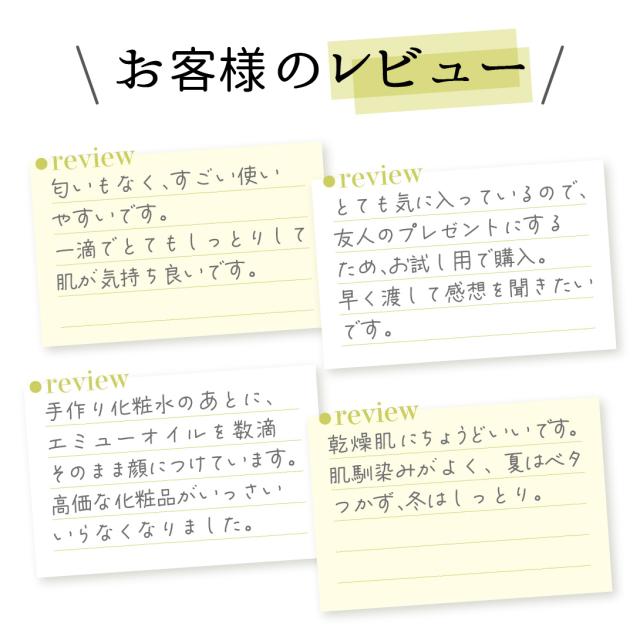 お客様のレビュー
review
匂いもなく、すごい使い
やすいです。
一滴でとてもしっとりして
肌が気持ち良いです。
review
とても気に入っているので、
友人のプレゼントにする
ため、お試し用で購入。
早く渡して感想を聞きたい
です。
review
手作り化粧水のあとに、
エミューオイルを数滴
そのまま顔につけています。
高価な化粧品がいっさい
いらなくなりました。
review
乾燥肌にちょうどいいです。
肌馴染みがよく、夏はベタ
つかず、冬はしっとり。